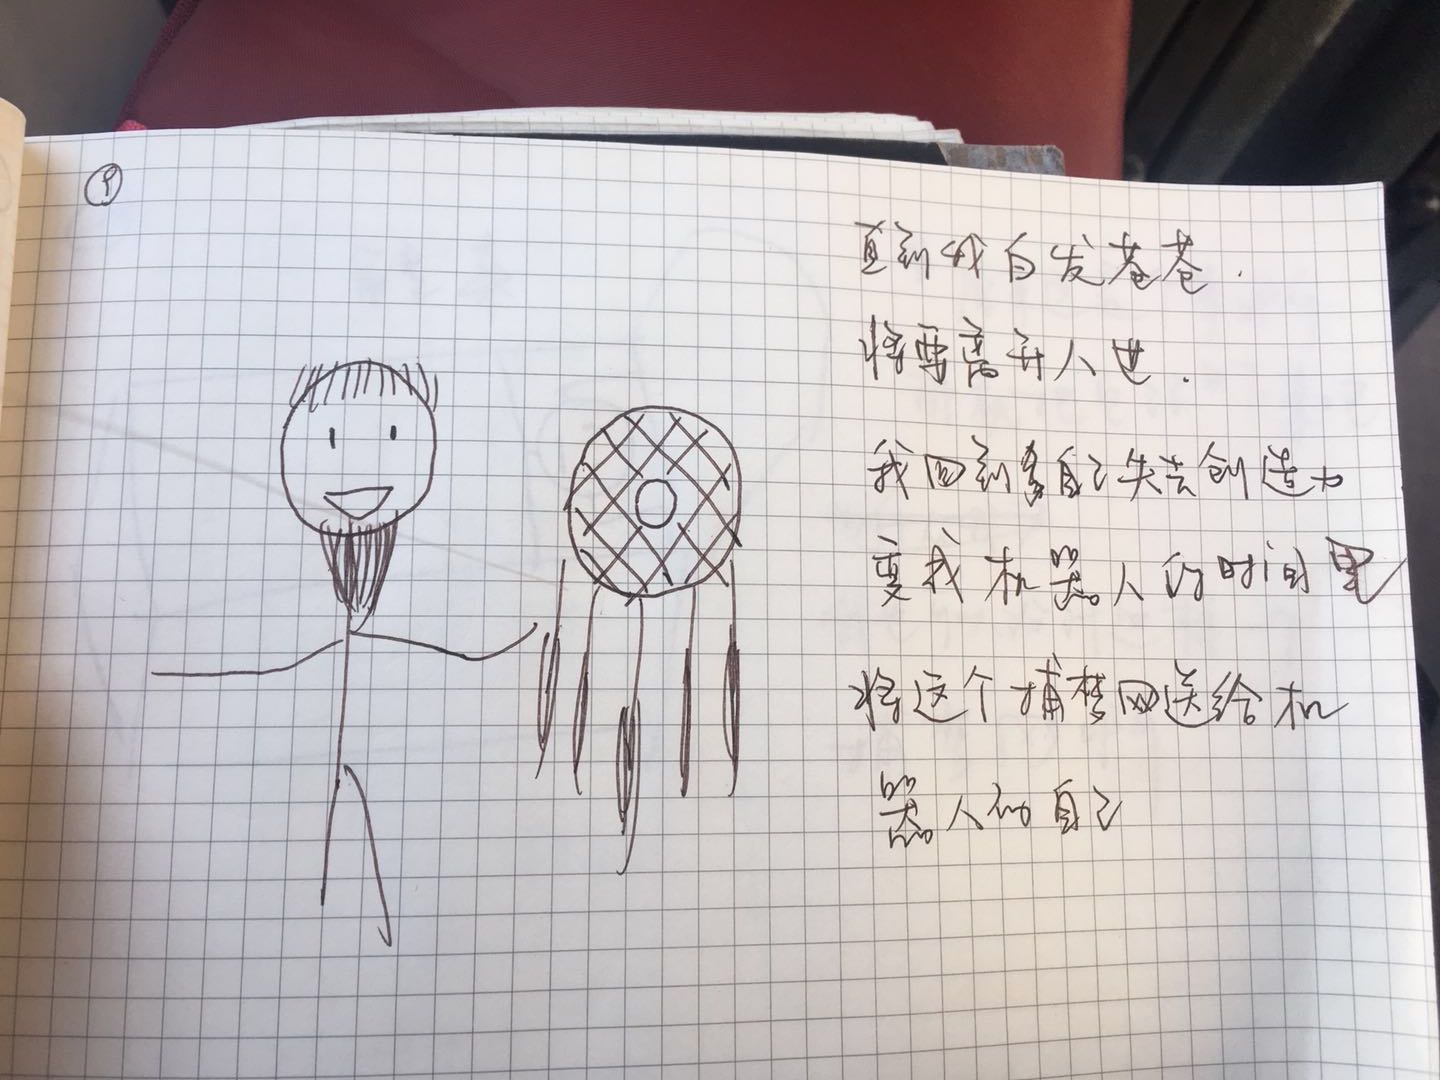 ⑨
直到我白发苍苍.
将要离开人世.
我回到自己失去创造力
变成机器人的时间里
将这个捕梦网送给机
器人的自己